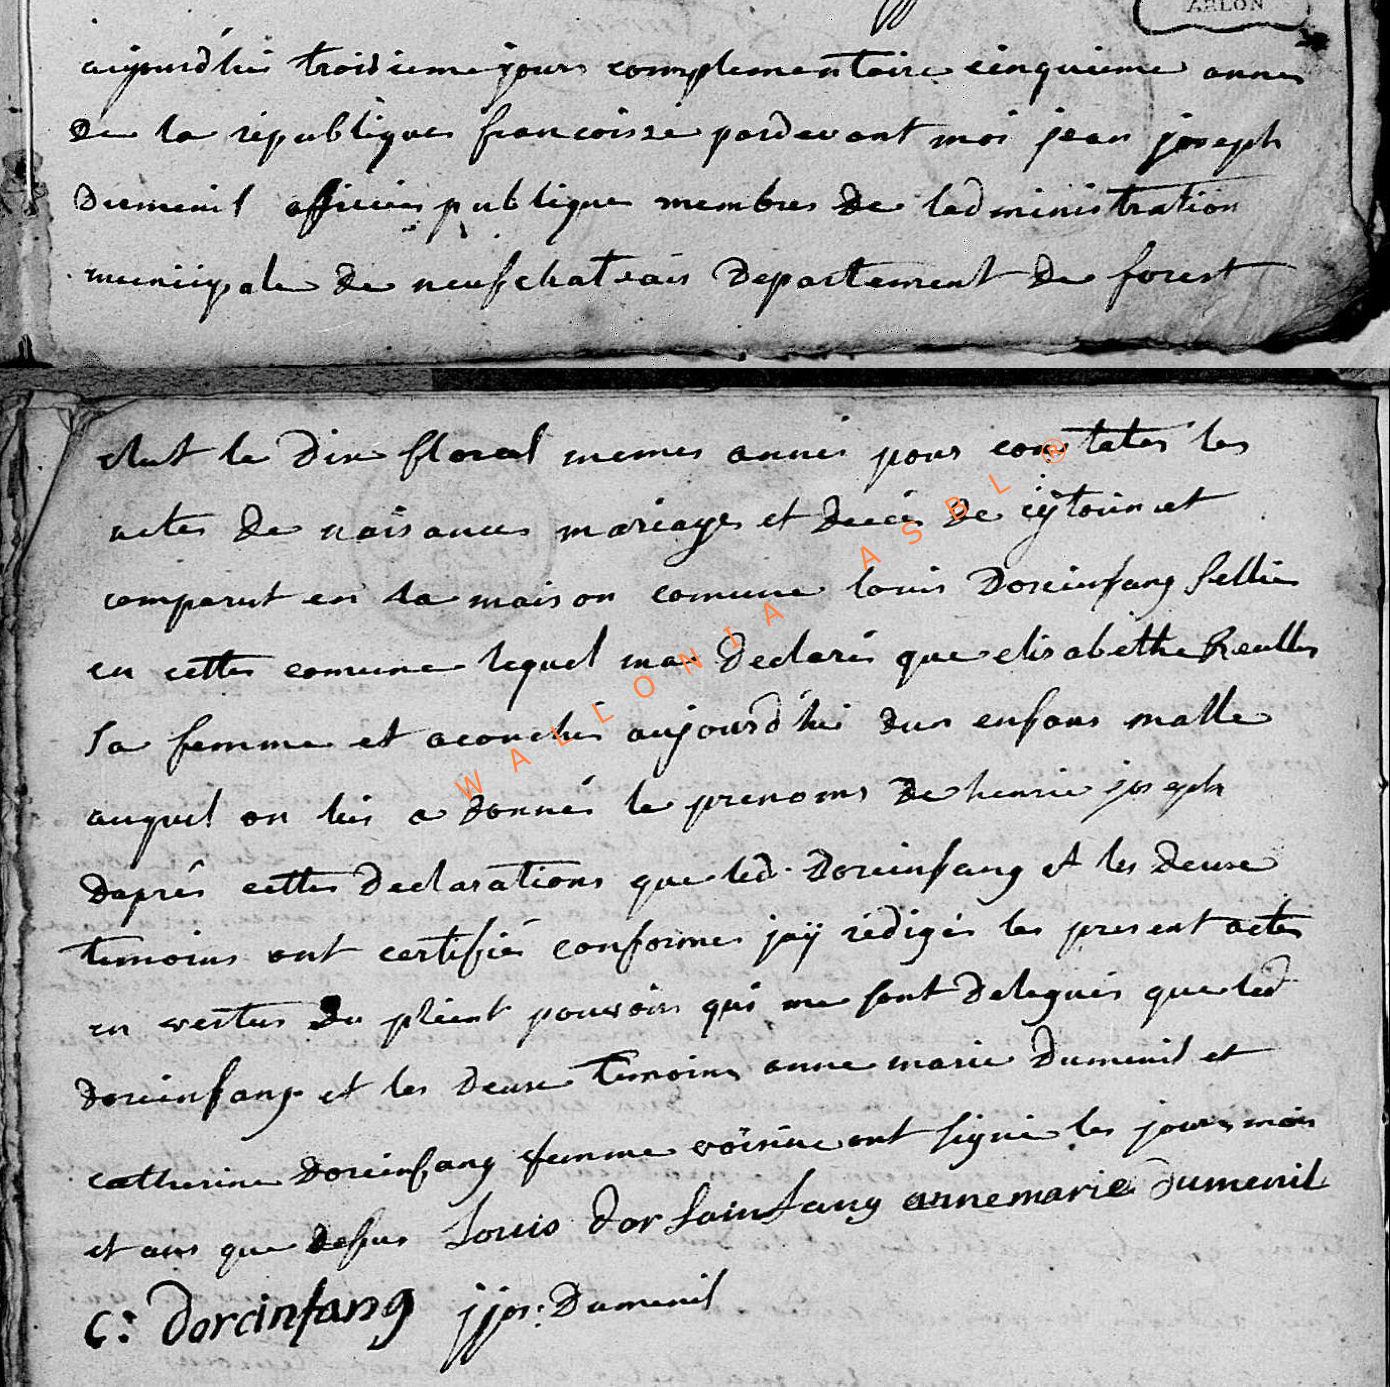 ARLON
aujourd'hui troisieme jours complementaire cinquieme annee
de la république francoisse pardevant moi jean joseph
Dumenil officier publique membres de ladministration
municipale de neufchateais Departement de forest
elut le dix floreal memes anneé pour constater les
actes de naisances mariages et deces de cÿtoien et
comparut en la maison comune louis Dorcinfang sellier
en cettes comune lequel ma declarés que elisabethe Reulles
sa femme et acouchés aujourd'hui dun enfans malle
auquel on lui a donnés le prenoms de henrie joseph
daprés cettes declarations que led. Dorcinfang et les deuxe
temoins ont certifiés conformes jaÿ rédigés les present actes
en vertus du plient pouvoirs qui me sont delegués que led
Dorcinfang et les deuxe temoins anne marie Dumenil et
catherine Dorcinfang femme voisine ont signé les jours mois
et ans que desus Louis dorsainfang anne marie dumenil
C: dorcinfang jjos: Dumenil
WALLONIA ASBL ®